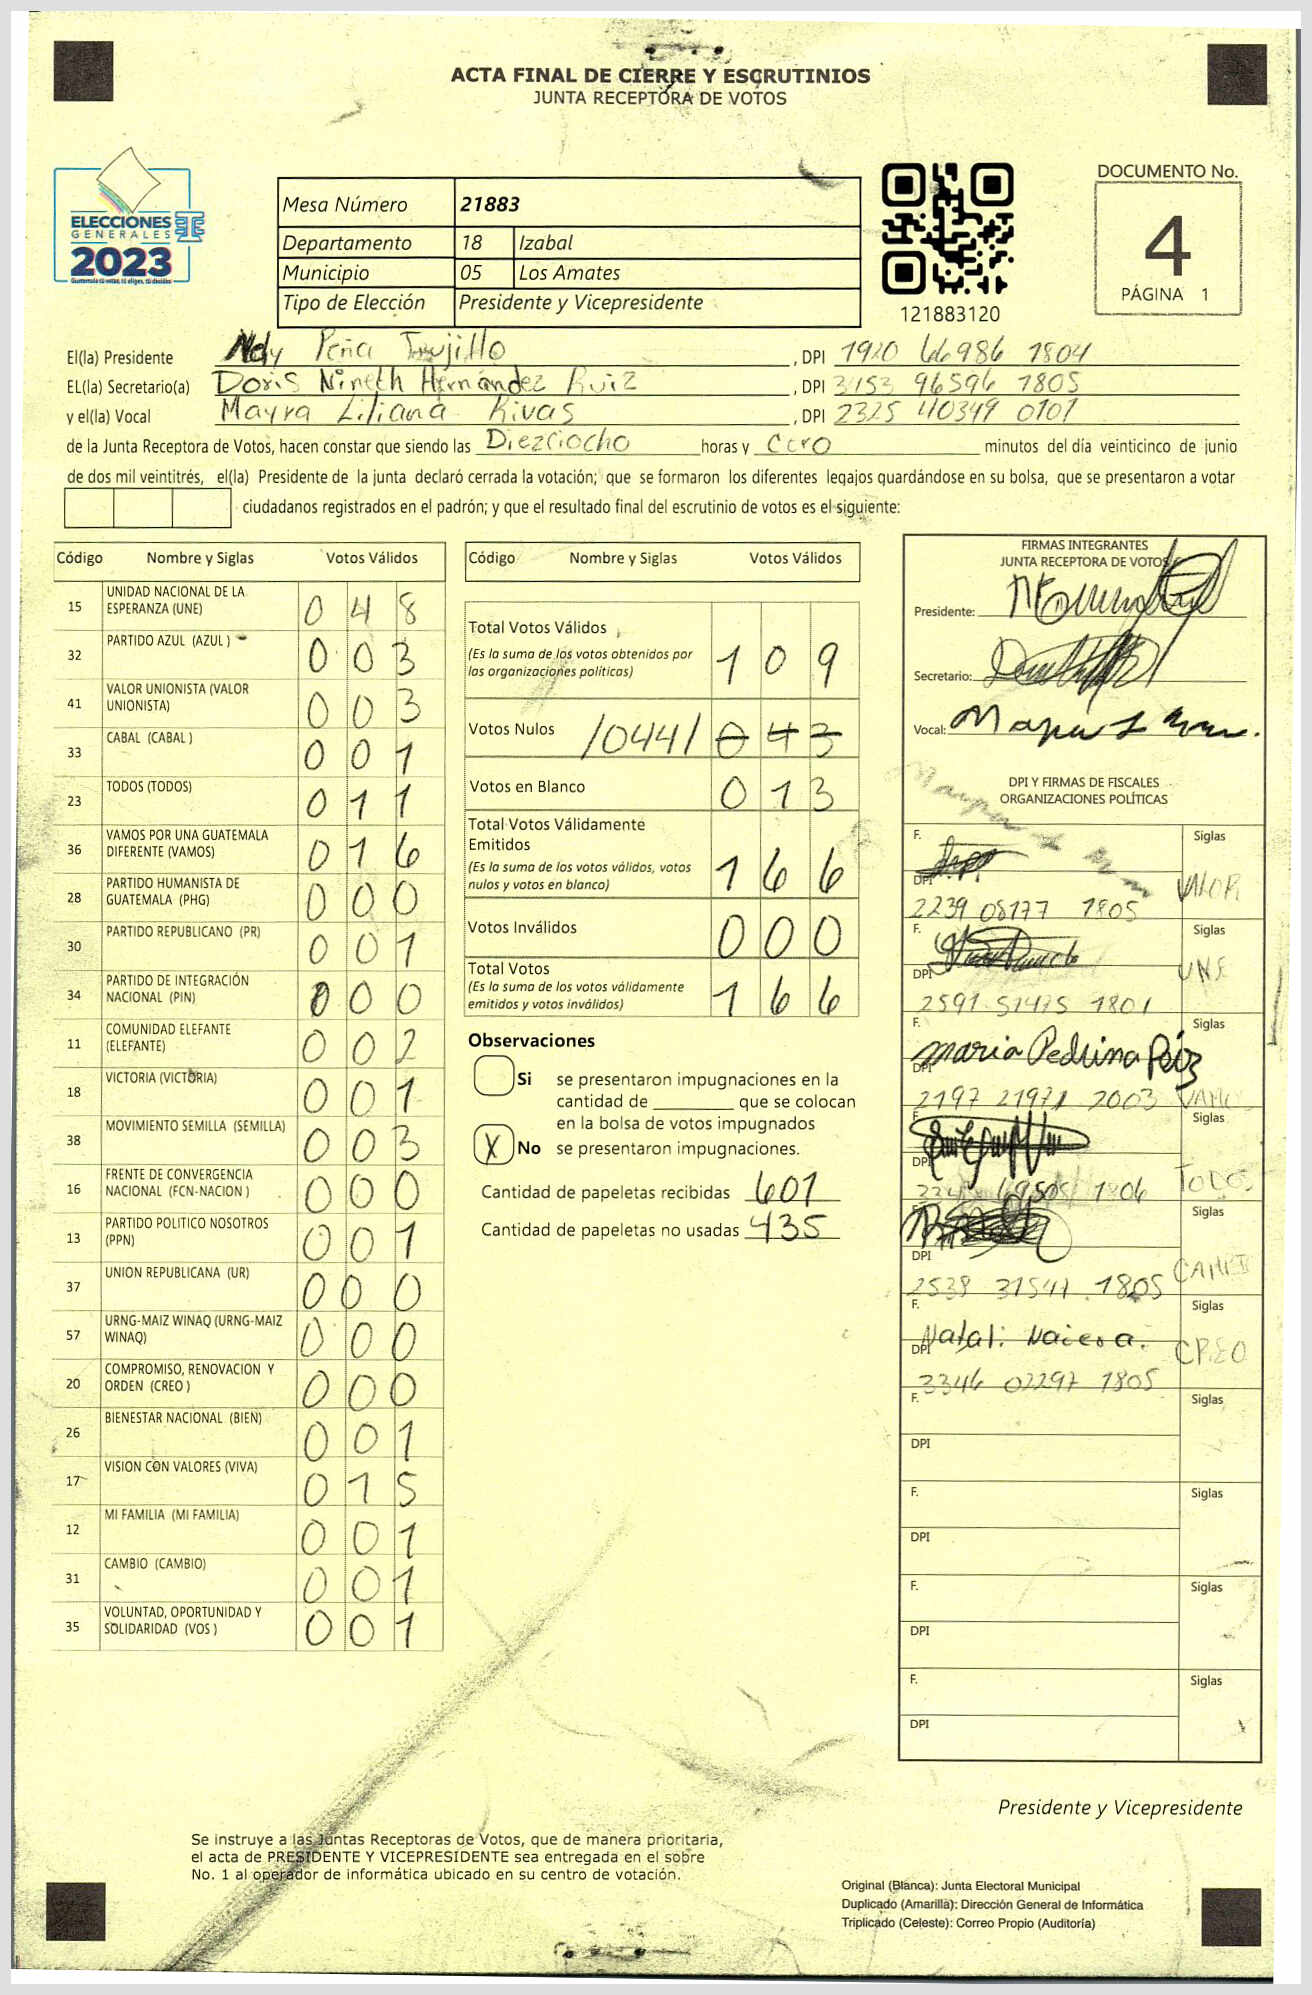 ACTA FINAL DE CIERRE Y ESCRUTINIOS
JUNTA RECEPTORA DE VOTOS
ELECCIONES
GENERALES
2023
Guatemala tú votas, tú eliges, tú decides
Mesa Número 21883
Departamento 18 Izabal
Municipio 05 Los Amates
Tipo de Elección Presidente y Vicepresidente
121883120
DOCUMENTO No.
4
PÁGINA 1
El(la) Presidente Peña Trujillo , DPI 1920 66986 1804
EL(la) Secretario(a) Doris Nineth Hernández Ruiz , DPI 3153 96596 1805
y el(la) Vocal Mayra Liliana Rivas , DPI 2325 40349 0101
de la Junta Receptora de Votos, hacen constar que siendo las Diezciocho horas y Cero minutos del día veinticinco de junio
de dos mil veintitrés, el(la) Presidente de la junta declaró cerrada la votación; que se formaron los diferentes legajos guardándose en su bolsa, que se presentaron a votar
ciudadanos registrados en el padrón; y que el resultado final del escrutinio de votos es el siguiente:
Código Nombre y Siglas Votos Válidos
15 UNIDAD NACIONAL DE LA ESPERANZA (UNE) 0 4 8
32 PARTIDO AZUL (AZUL ) 0 0 3
41 VALOR UNIONISTA (VALOR UNIONISTA) 0 0 3
33 CABAL (CABAL ) 0 0 1
23 TODOS (TODOS) 0 1 1
36 VAMOS POR UNA GUATEMALA DIFERENTE (VAMOS) 0 1 6
28 PARTIDO HUMANISTA DE GUATEMALA (PHG) 0 0 0
30 PARTIDO REPUBLICANO (PR) 0 0 1
34 PARTIDO DE INTEGRACIÓN NACIONAL (PIN) 0 0 0
11 COMUNIDAD ELEFANTE (ELEFANTE) 0 0 2
18 VICTORIA (VICTORIA) 0 0 1
38 MOVIMIENTO SEMILLA (SEMILLA) 0 0 3
16 FRENTE DE CONVERGENCIA NACIONAL (FCN-NACION ) 0 0 0
13 PARTIDO POLITICO NOSOTROS (PPN) 0 0 1
37 UNION REPUBLICANA (UR) 0 0 0
57 URNG-MAIZ WINAQ (URNG-MAIZ WINAQ) 0 0 0
20 COMPROMISO, RENOVACION Y ORDEN (CREO ) 0 0 0
26 BIENESTAR NACIONAL (BIEN) 0 0 1
17 VISION CON VALORES (VIVA) 0 1 5
12 MI FAMILIA (MI FAMILIA) 0 0 1
31 CAMBIO (CAMBIO) 0 0 1
35 VOLUNTAD, OPORTUNIDAD Y SOLIDARIDAD (VOS ) 0 0 1
Código Nombre y Siglas Votos Válidos
Total Votos Válidos
(Es la suma de los votos obtenidos por
las organizaciones políticas) 1 0 9
Votos Nulos /044/ 0 4 3
Votos en Blanco 0 1 3
Total Votos Válidamente
Emitidos
(Es la suma de los votos válidos, votos
nulos y votos en blanco) 1 6 6
Votos Inválidos 0 0 0
Total Votos
(Es la suma de los votos válidamente
emitidos y votos inválidos) 1 6 6
Observaciones
Si se presentaron impugnaciones en la
cantidad de ________ que se colocan
en la bolsa de votos impugnados
X No se presentaron impugnaciones.
Cantidad de papeletas recibidas 601
Cantidad de papeletas no usadas 435
FIRMAS INTEGRANTES
JUNTA RECEPTORA DE VOTOS
Presidente:
Secretario:
Vocal:
DPI Y FIRMAS DE FISCALES
ORGANIZACIONES POLÍTICAS
F. Siglas
DPI VALOR
2239 08177 1805
F. Siglas
DPI UNE
2591 51475 1801
F. Siglas
Maria Pedrina Páiz
DPI
2197 21971 2003 VAMOS
F. Siglas
DPI TODOS
69505 1806
Siglas
DPI
2539 31541 1805
F. Siglas
DPI CREO
3346 02297 1805
F. Siglas
DPI
F. Siglas
DPI
F. Siglas
DPI
F. Siglas
DPI
Presidente y Vicepresidente
Se instruye a las Juntas Receptoras de Votos, que de manera prioritaria,
el acta de PRESIDENTE Y VICEPRESIDENTE sea entregada en el sobre
No. 1 al operador de informática ubicado en su centro de votación.
Original (Blanca): Junta Electoral Municipal
Duplicado (Amarilla): Dirección General de Informática
Triplicado (Celeste): Correo Propio (Auditoría)